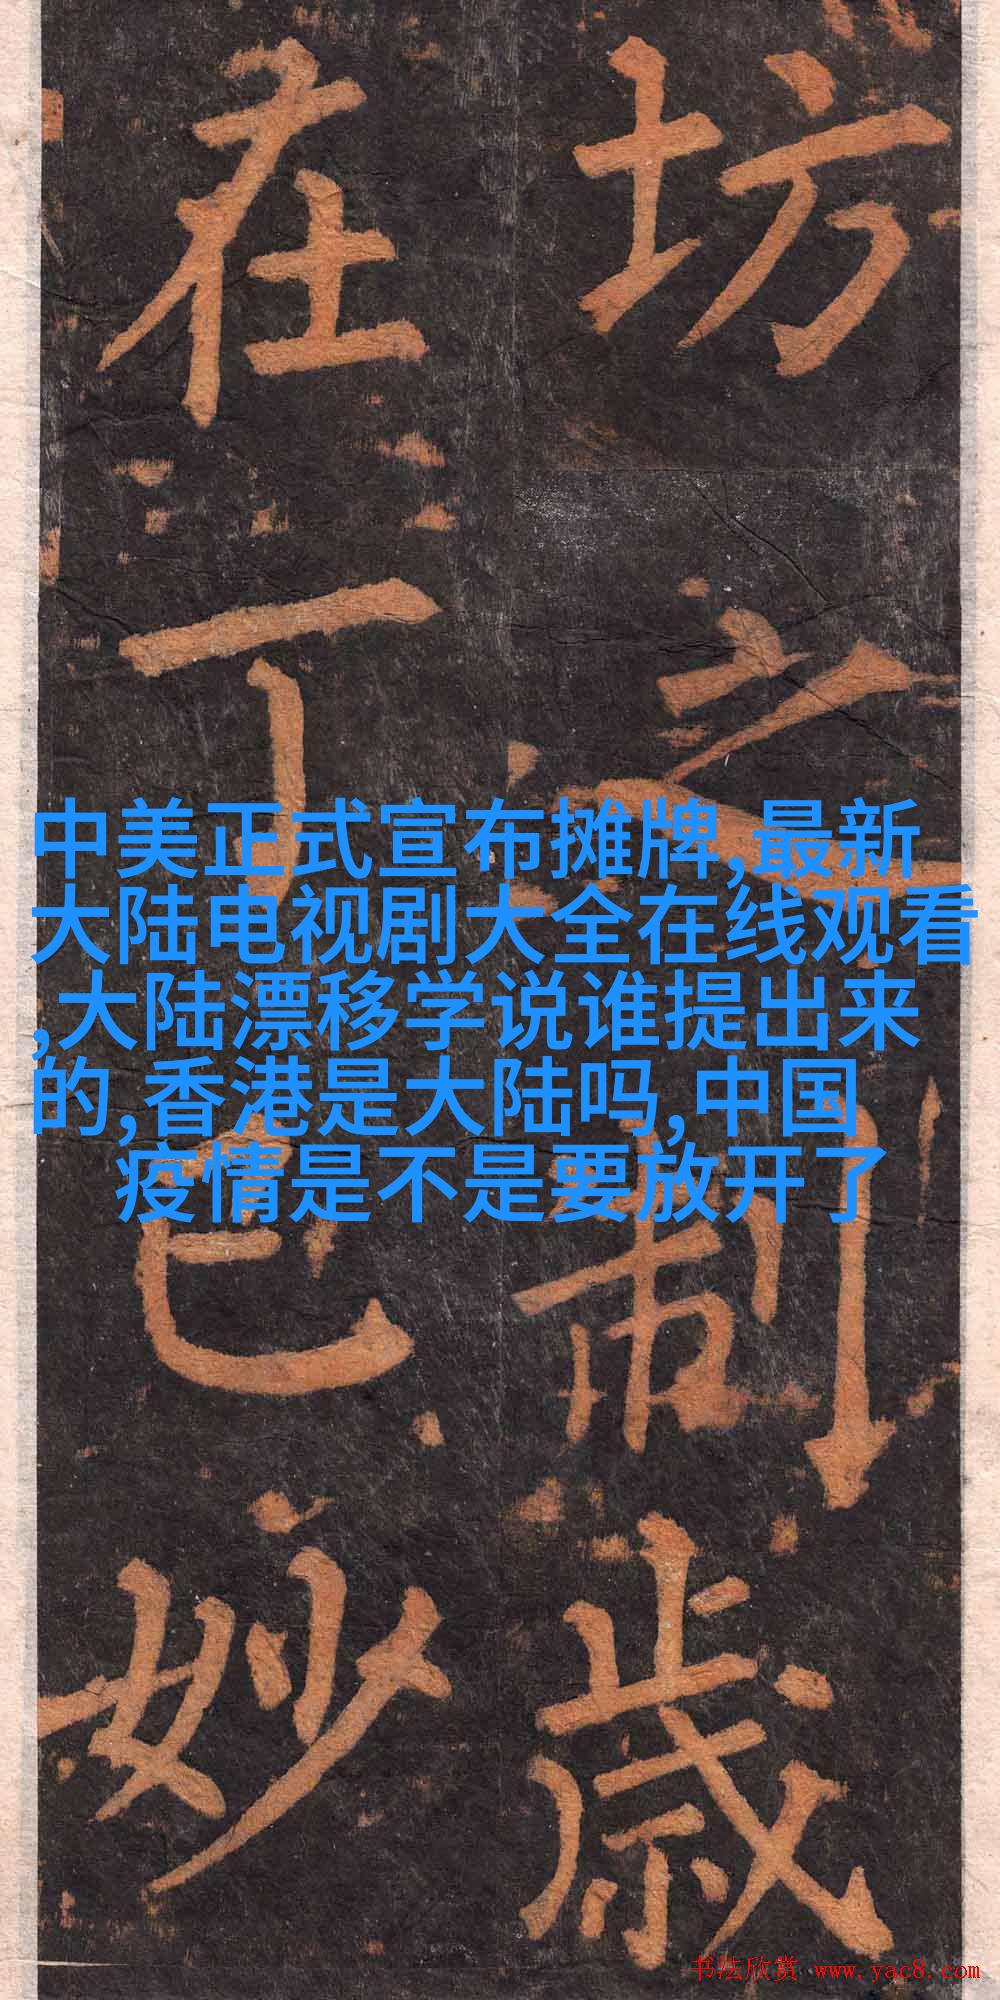 坊之制歲
在丁巳妙
中美正式宣布摊牌,最新
大陆电视剧大全在线观看
,大陆漂移学说谁提出来
的,香港是大陆吗,中国
疫情是不是要放开了
书法欣赏 www.yac8.com